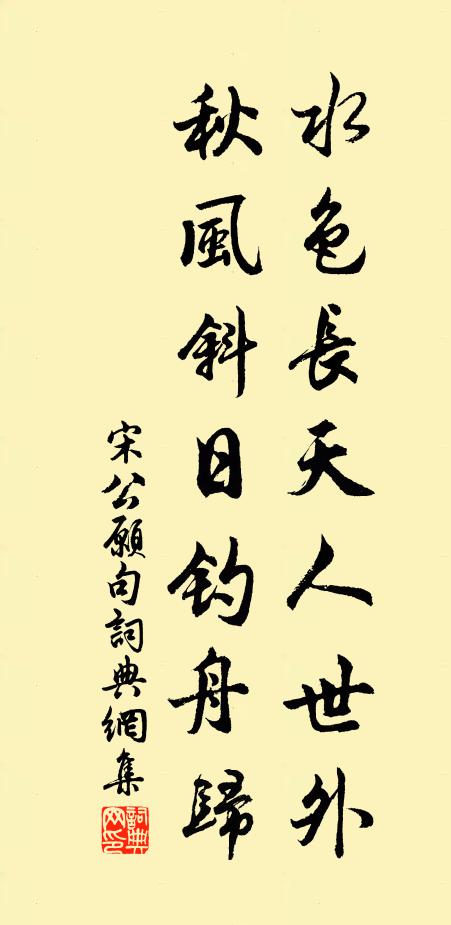 水色長天人世外
秋風斜日釣舟歸
宋公願句詞典網集
詞典網印